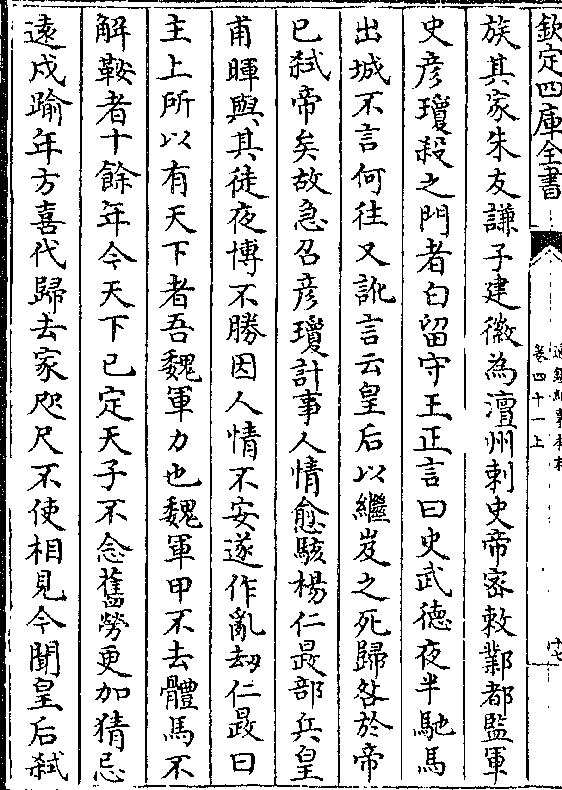 欽定四庫全書
通鑑紀事本末
卷四十一上
族其家朱友謙子建徽為澶州刺史帝密敕鄴都監軍
史彦瓊殺之門者白留守王正言曰史武德夜半馳馬
出城不言何往又訛言云皇后以繼岌之死歸咎於帝
已弑帝矣故急召彦瓊計事人情愈駭楊仁晸部兵皇
甫暉與其徒夜博不勝因人情不安遂作亂刼仁晸曰
主上所以有天下者吾魏軍力也魏軍甲不去體馬不
解鞍者十餘年今天下已定天子不念舊勞更加猜忌
遠戍踰年方喜代歸去家咫尺不使相見今聞皇后弑